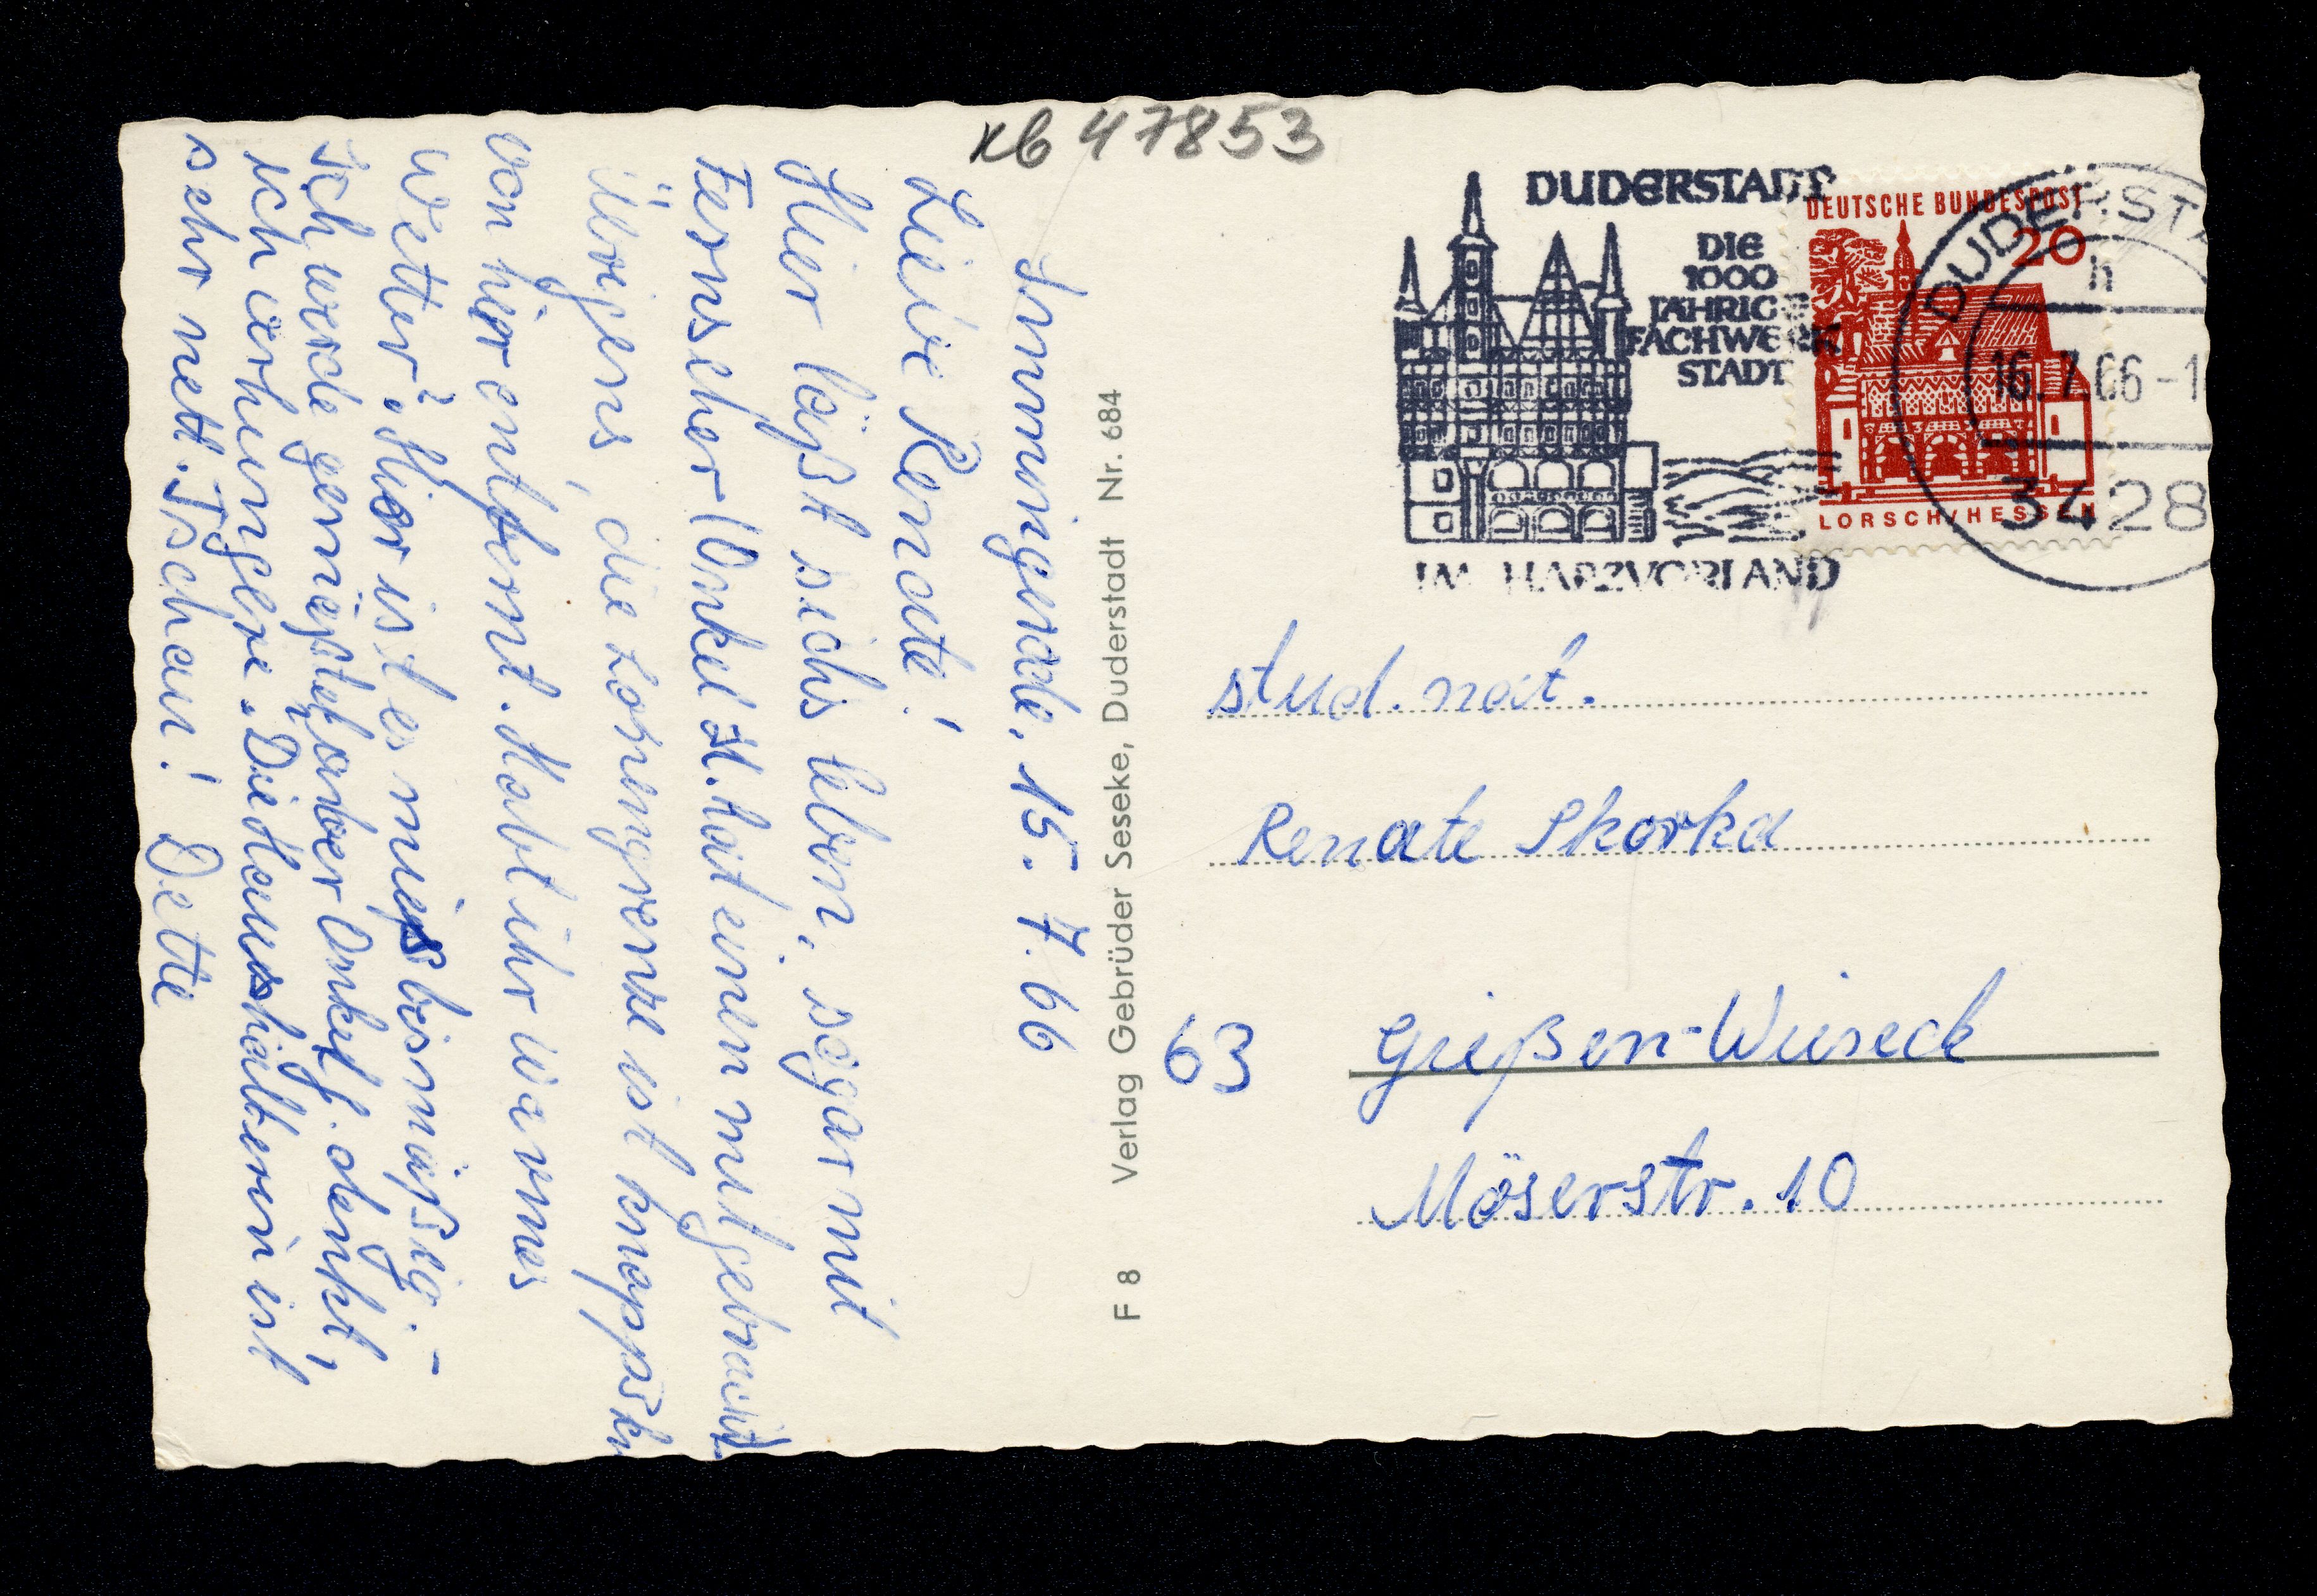 xb 47853
Immingerode, 15. 7. 66
Liebe Renate!
Hier läßt sichs leben, sogar mit
Fernseher (Onkel H. hat einen mitgebracht).
Übrigens, die Zonengrenze ist knapp 5 km
von hier entfernt. Habt ihr warmes
Wetter? Hier ist es mäßig bis mäßig. -
Ich werde gemästet, aber Onkel H. denkt,
ich verhungere. Die Haushälterin ist
sehr nett. Tschau! Dette
F 8 Verlag Gebrüder Seseke, Duderstadt Nr. 684
DUDERSTADT
DIE
1000
JÄHRIGE
FACHWERK
STADT
IM HARZVORLAND
DEUTSCHE BUNDESPOST
20
LORSCH/HESSEN
DUDERSTA
h
16.7.66-1
3428
stud. nat.
Renate Skorka
63 Gießen-Wieseck
Möserstr. 10